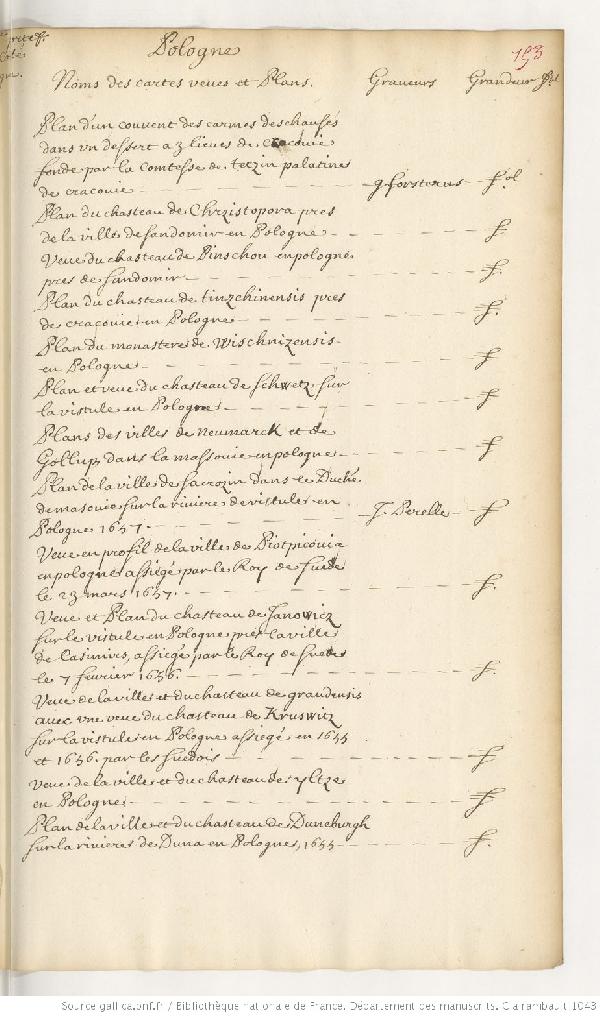 Pologne
153
Noms des cartes veues et Plans. Graveurs Grandeur
Plan d'un couvent des carmes deschaussés
dans un dessert a 3 lieues de cracovie
fondé par la Comtesse de teczin palatine
de cracovie g. forsterus fol
Plan du chasteau de Chrzistopora pres
de la ville de sandomir en Pologne f.
Veue du chasteau de Pinschou en pologne
pres de sandomir f.
Plan du chasteau de tinzchinensis pres
de cracovie en Pologne f.
Plan du monastere de Wischnizensis
en Pologne f
Plan et veue du chasteau de schwetz sur
la vistule en Pologne f.
Plans des villes de neumarck et de
Gollup dans la massovie en pologne f
Plan de la ville de sacrozin dans le Duché
de masovie sur la riviere de vistule en
Pologne 1657. J. Perelle f
Veue en profil de la ville de
en pologne assiegé par le Roy de suede
le 23 mars 1657. f.
Veue et Plan du chasteau de Janowicz
sur le vistule en Pologne pres la ville
de Casimirs, assiegé par le Roy de suede
le 7 fevrier 1656. f.
Veue de la ville et du chasteau de graudensis
avec une veue du chasteau de Kruswitz
sur la vistule en Pologne assiegé en 1655
et 1656. par les suedois f
Veue de la ville et du chasteau de yltze
en Pologne f
Plan de la ville et du chasteau de Duneburgh
sur la riviere de Duna en Pologne, 1655 f.
Source gallica.bnf.fr / Bibliothèque nationale de France. Département des manuscrits. Clairambault 1043